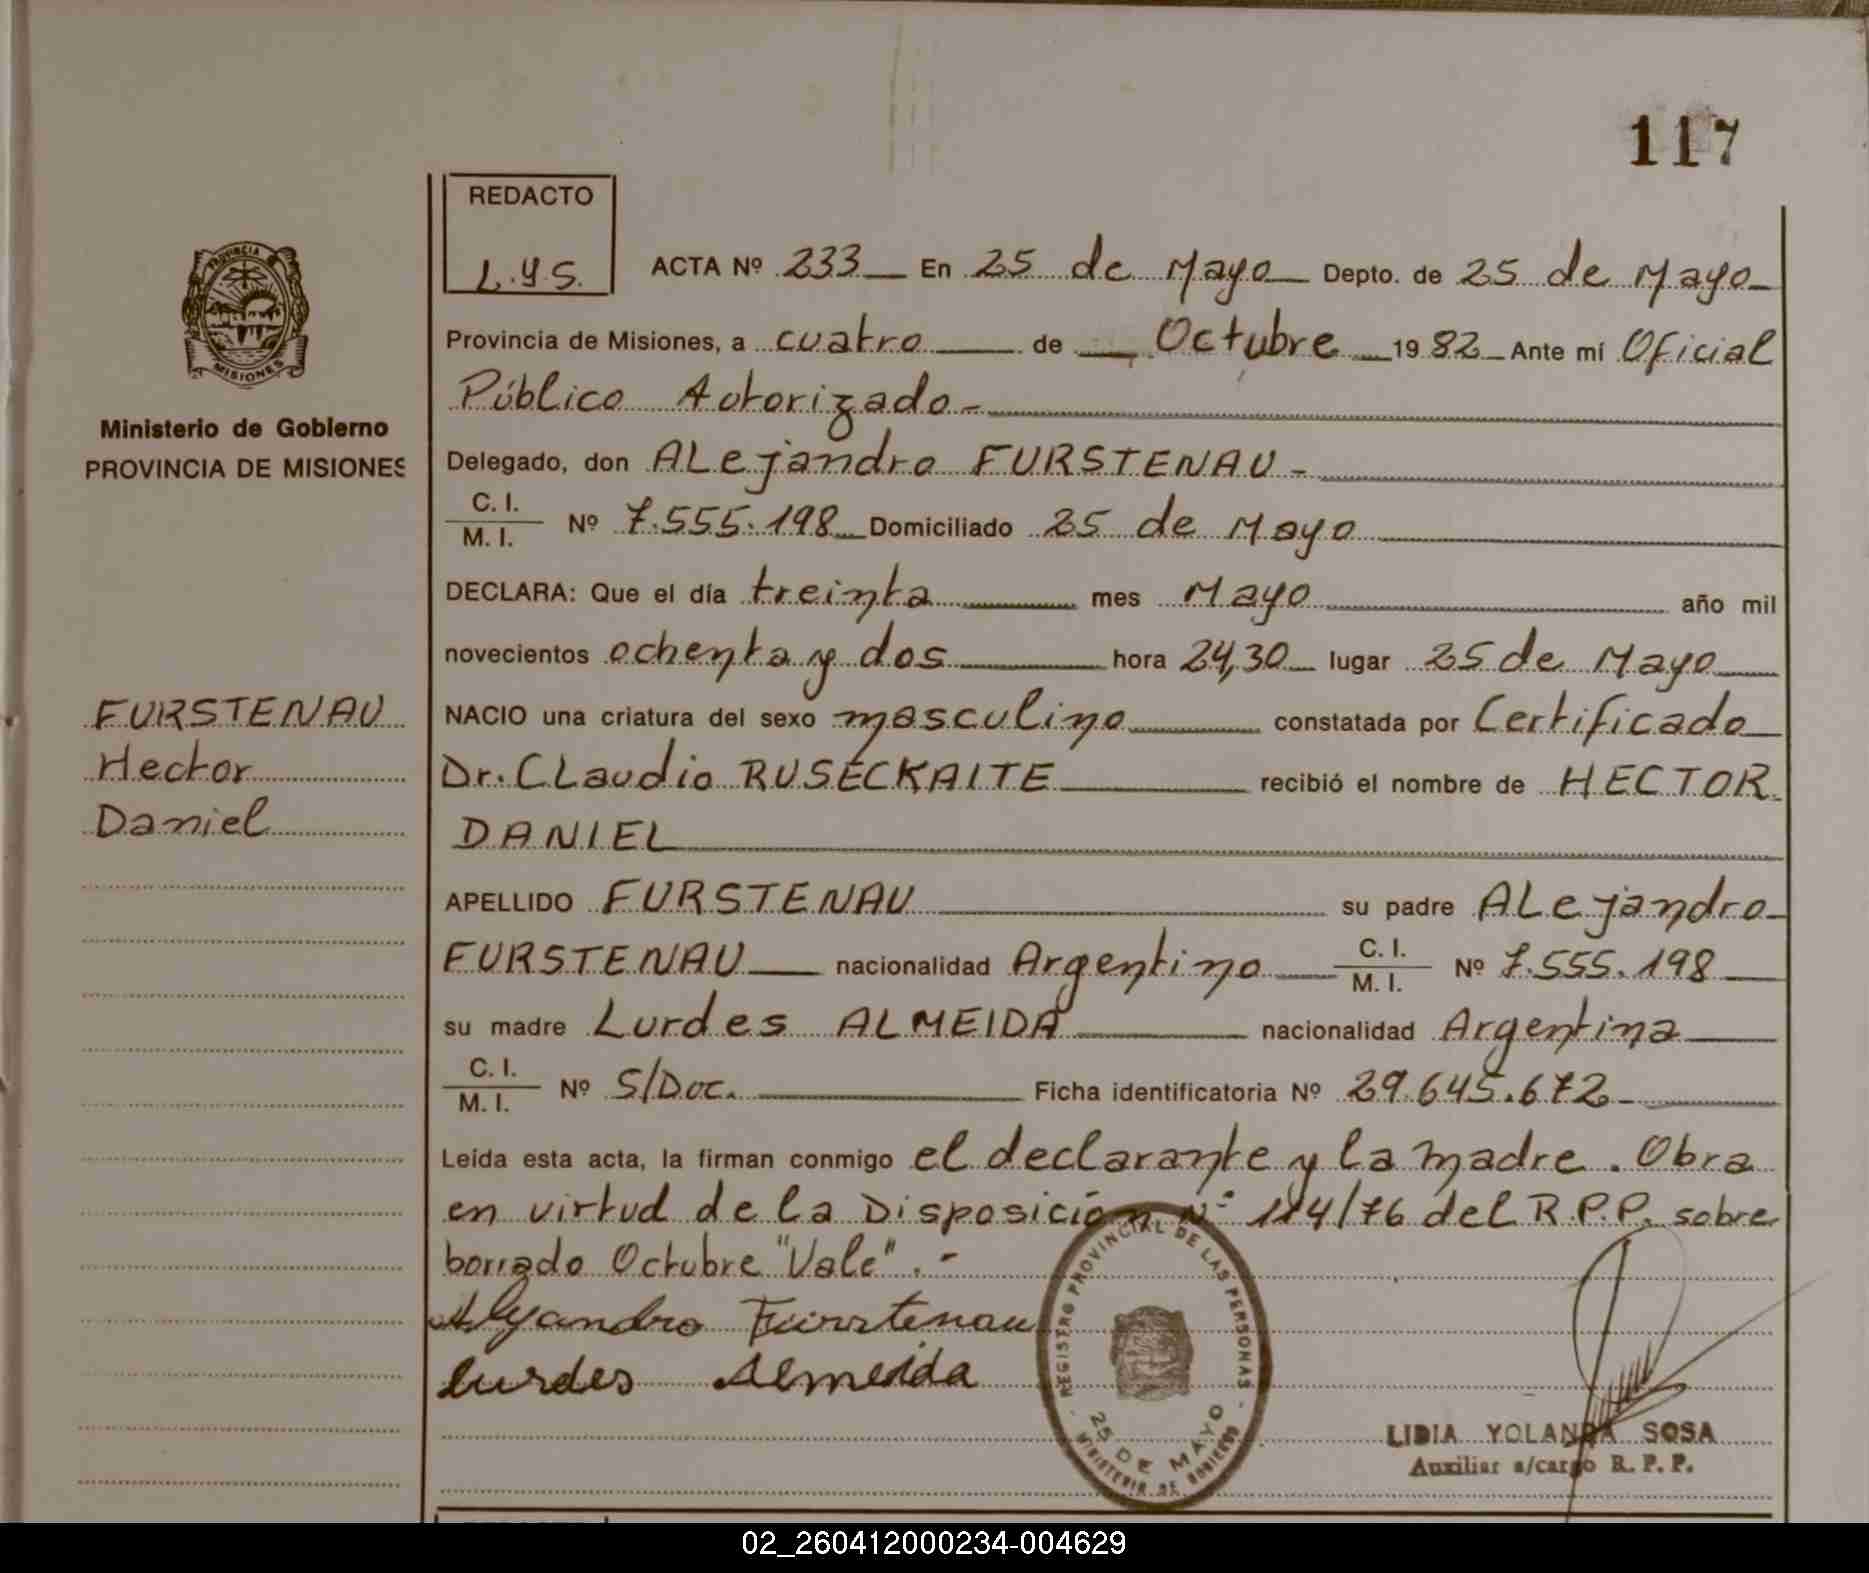 117
REDACTO
L.Y.S.
ACTA Nº 233 En 25 de Mayo Depto. de 25 de Mayo
Provincia de Misiones, a cuatro de Octubre 1982 Ante mí Oficial
Público Autorizado-
Delegado, don ALejandro FURSTENAU-
C. I.
M. I. Nº 7.555.198 Domiciliado 25 de Mayo
DECLARA: Que el día treinta mes Mayo año mil
novecientos ochenta y dos hora 24,30 lugar 25 de Mayo
NACIO una criatura del sexo masculino constatada por Certificado
Dr. CLaudio RUSECKAITE recibió el nombre de HECTOR
DANIEL
APELLIDO FURSTENAU su padre ALejandro
FURSTENAU nacionalidad Argentino C. I.
M. I. Nº 7.555.198
su madre Lurdes ALMEIDA nacionalidad Argentina
C. I.
M. I. Nº S/Doc. Ficha identificatoria Nº 29.645.672
Leída esta acta, la firman conmigo el declarante y la madre. Obra
en virtud de la Disposición Nº 114/76 del R.P.P. sobre
borrado Octubre "Vale".-
Alejandro Fürstenau
Lurdes Almeida
REGISTRO PROVINCIAL DE LAS PERSONAS
25 DE MAYO
MINISTERIO DE GOBIERNO
LIDIA YOLANDA SOSA
Auxiliar a/cargo R. P. P.
PROVINCIA
MISIONES
Ministerio de Gobierno
PROVINCIA DE MISIONES
FURSTENAU
Hector
Daniel
02_260412000234-004629